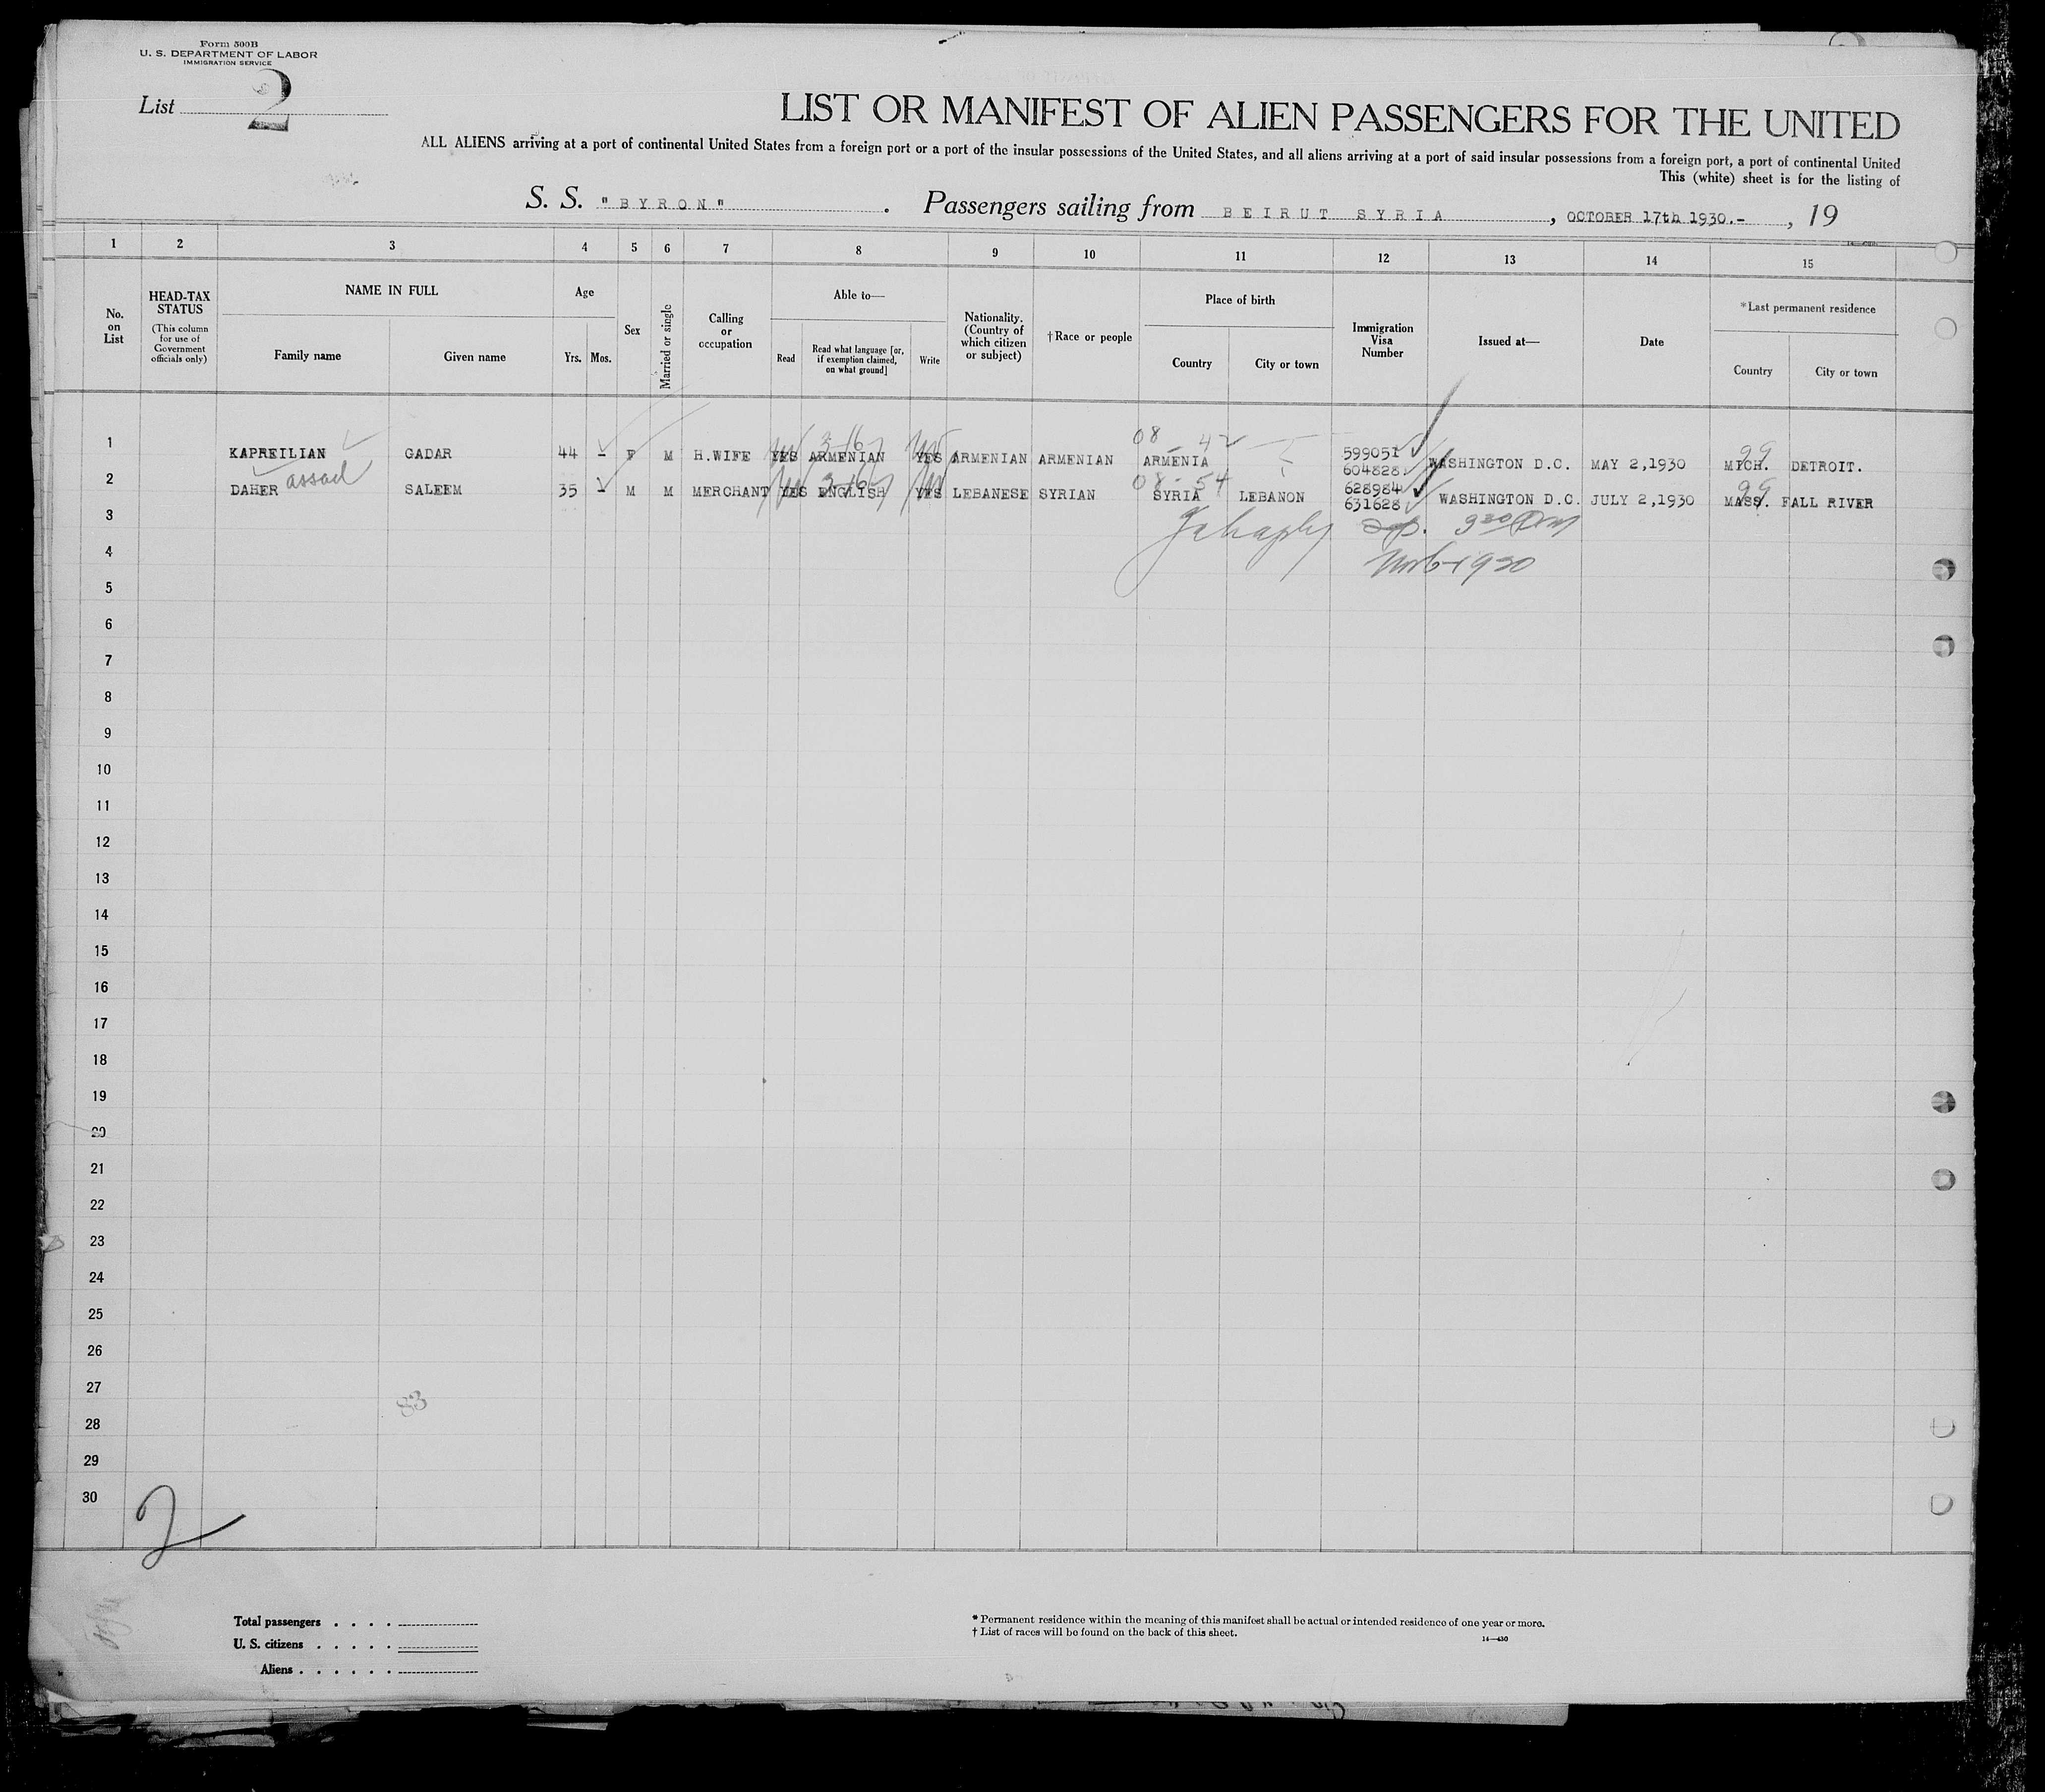 Form 500B
U. S. DEPARTMENT OF LABOR
IMMIGRATION SERVICE
List 2
LIST OR MANIFEST OF ALIEN PASSENGERS FOR THE UNITED
ALL ALIENS arriving at a port of continental United States from a foreign port or a port of the insular possessions of the United States, and all aliens arriving at a port of said insular possessions from a foreign port, a port of continental United
This (white) sheet is for the listing of
S. S. "BYRON" . Passengers sailing from BEIRUT SYRIA , OCTOBER 17th 1930.- , 19
1 2 3 4 5 6 7 8 9 10 11 12 13 14 15
No. on List
HEAD-TAX STATUS
(This column for use of Government officials only)
NAME IN FULL
Family name Given name
Age
Yrs. Mos.
Sex
Married or single
Calling or occupation
Able to—
Read
Read what language [or, if exemption claimed, on what ground]
Write
Nationality. (Country of which citizen or subject)
†Race or people
Place of birth
Country City or town
Immigration Visa Number
Issued at—
Date
*Last permanent residence
Country City or town
08 - 42
1 KAPREILIAN GADAR 44 - F M H.WIFE YES ARMENIAN YES ARMENIAN ARMENIAN ARMENIA 599051 604828 WASHINGTON D.C. MAY 2,1930 MICH. DETROIT.
99
assad
08-54
2 DAHER SALEEM 35 - M M MERCHANT YES ENGLISH YES LEBANESE SYRIAN SYRIA LEBANON 628984 631628 WASHINGTON D.C. JULY 2,1930 MASS. FALL RIVER
99
3
Nov 6-1930
4
5
6
7
8
9
10
11
12
13
14
15
16
17
18
19
20
21
22
23
24
25
26
27
83
28
29
30
2
Total passengers . . . .
U. S. citizens . . . . .
Aliens . . . . . .
* Permanent residence within the meaning of this manifest shall be actual or intended residence of one year or more.
† List of races will be found on the back of this sheet.
14—430